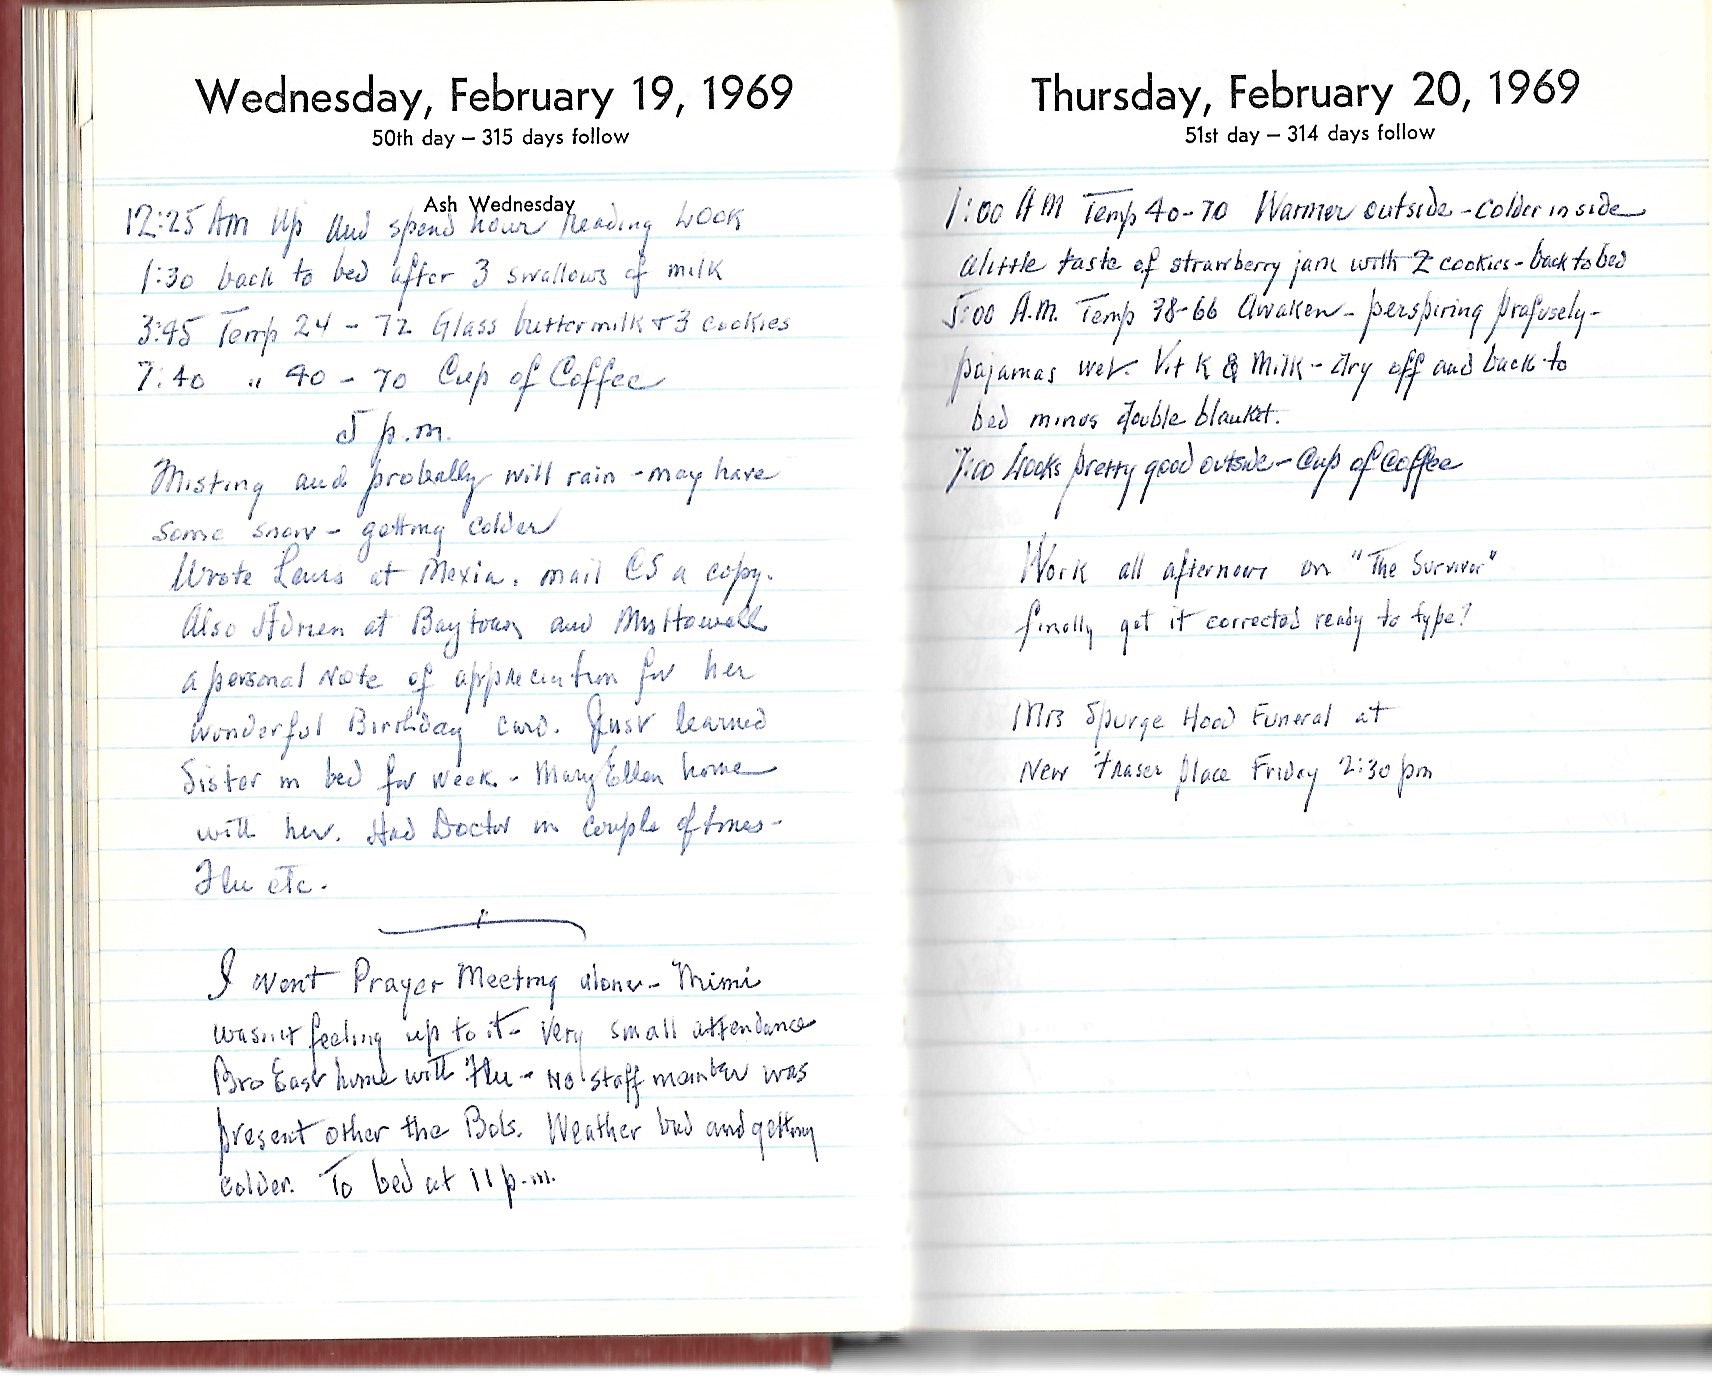 Wednesday, February 19, 1969
50th day – 315 days follow
Ash Wednesday
12:25 Am Up and spend hour reading Look
1:30 back to bed after 3 swallows of milk
3:45 Temp 24 - 72 Glass buttermilk + 3 cookies
7:40 " 40 - 70 Cup of Coffee
5 p.m.
Misting and probally will rain - may have
some snow - getting colder
Wrote Laura at Mexia. mail CS a copy.
Also Adrien at Baytown and Mrs Howell
a personal note of appreciation for her
wonderful Birthday card. Just learned
Sister in bed for week. - Mary Ellen home
with her. Had Doctor in couple of times -
Flu etc.
I went Prayer Meeting alone - Mimi
wasnt feeling up to it - very small attendance
Bro East home with Flu - no staff member was
present other the Bols. Weather bad and getting
colder. To bed at 11 p.m.
Thursday, February 20, 1969
51st day – 314 days follow
1:00 AM Temp 40-70 Warmer outside - colder inside
alittle taste of strawberry jam with 2 cookies - back to bed
5:00 A.M. Temp 38-66 Awaken - perspiring profusely -
pajamas wet. Vit K & Milk - dry off and back to
bed minus double blanket.
7:00 Looks pretty good outside - Cup of Coffee
Work all afternoon on "The Survivor"
finally get it corrected ready to type!
Mrs Spurge Hood Funeral at
New Fraser place Friday 2:30 pm